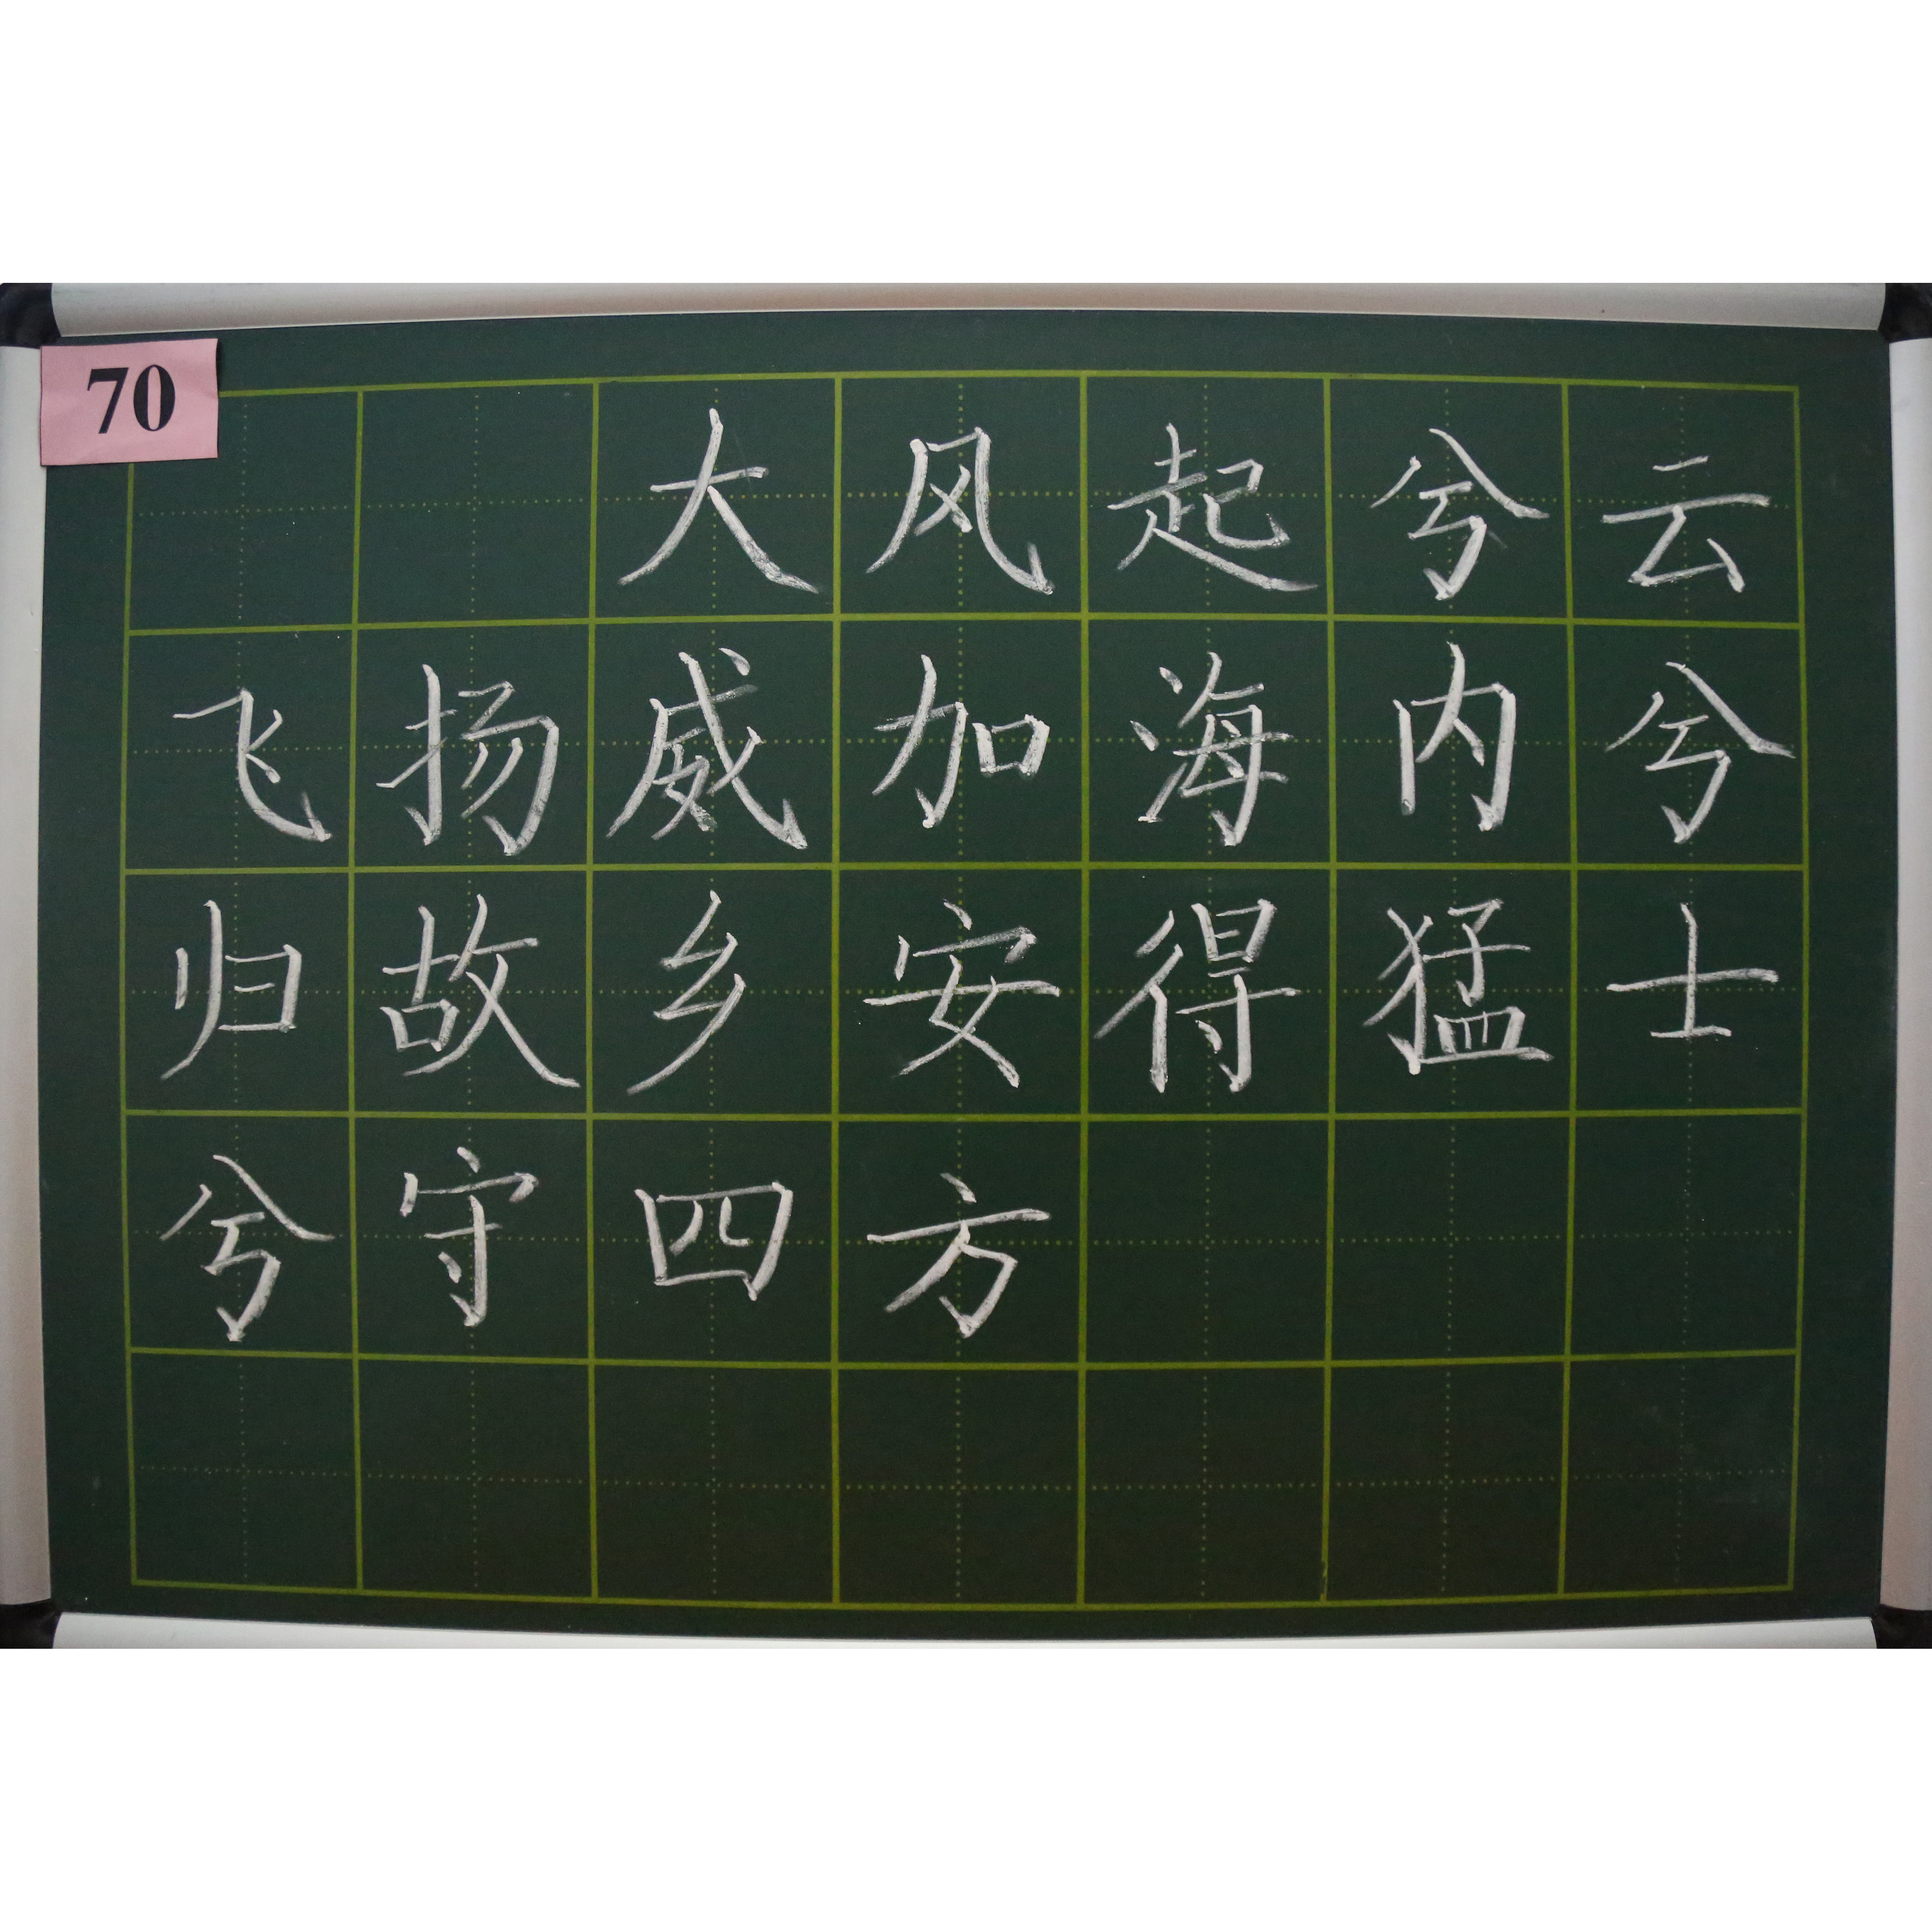 70
大风起兮云
飞扬威加海内兮
归故乡安得猛士
兮守四方